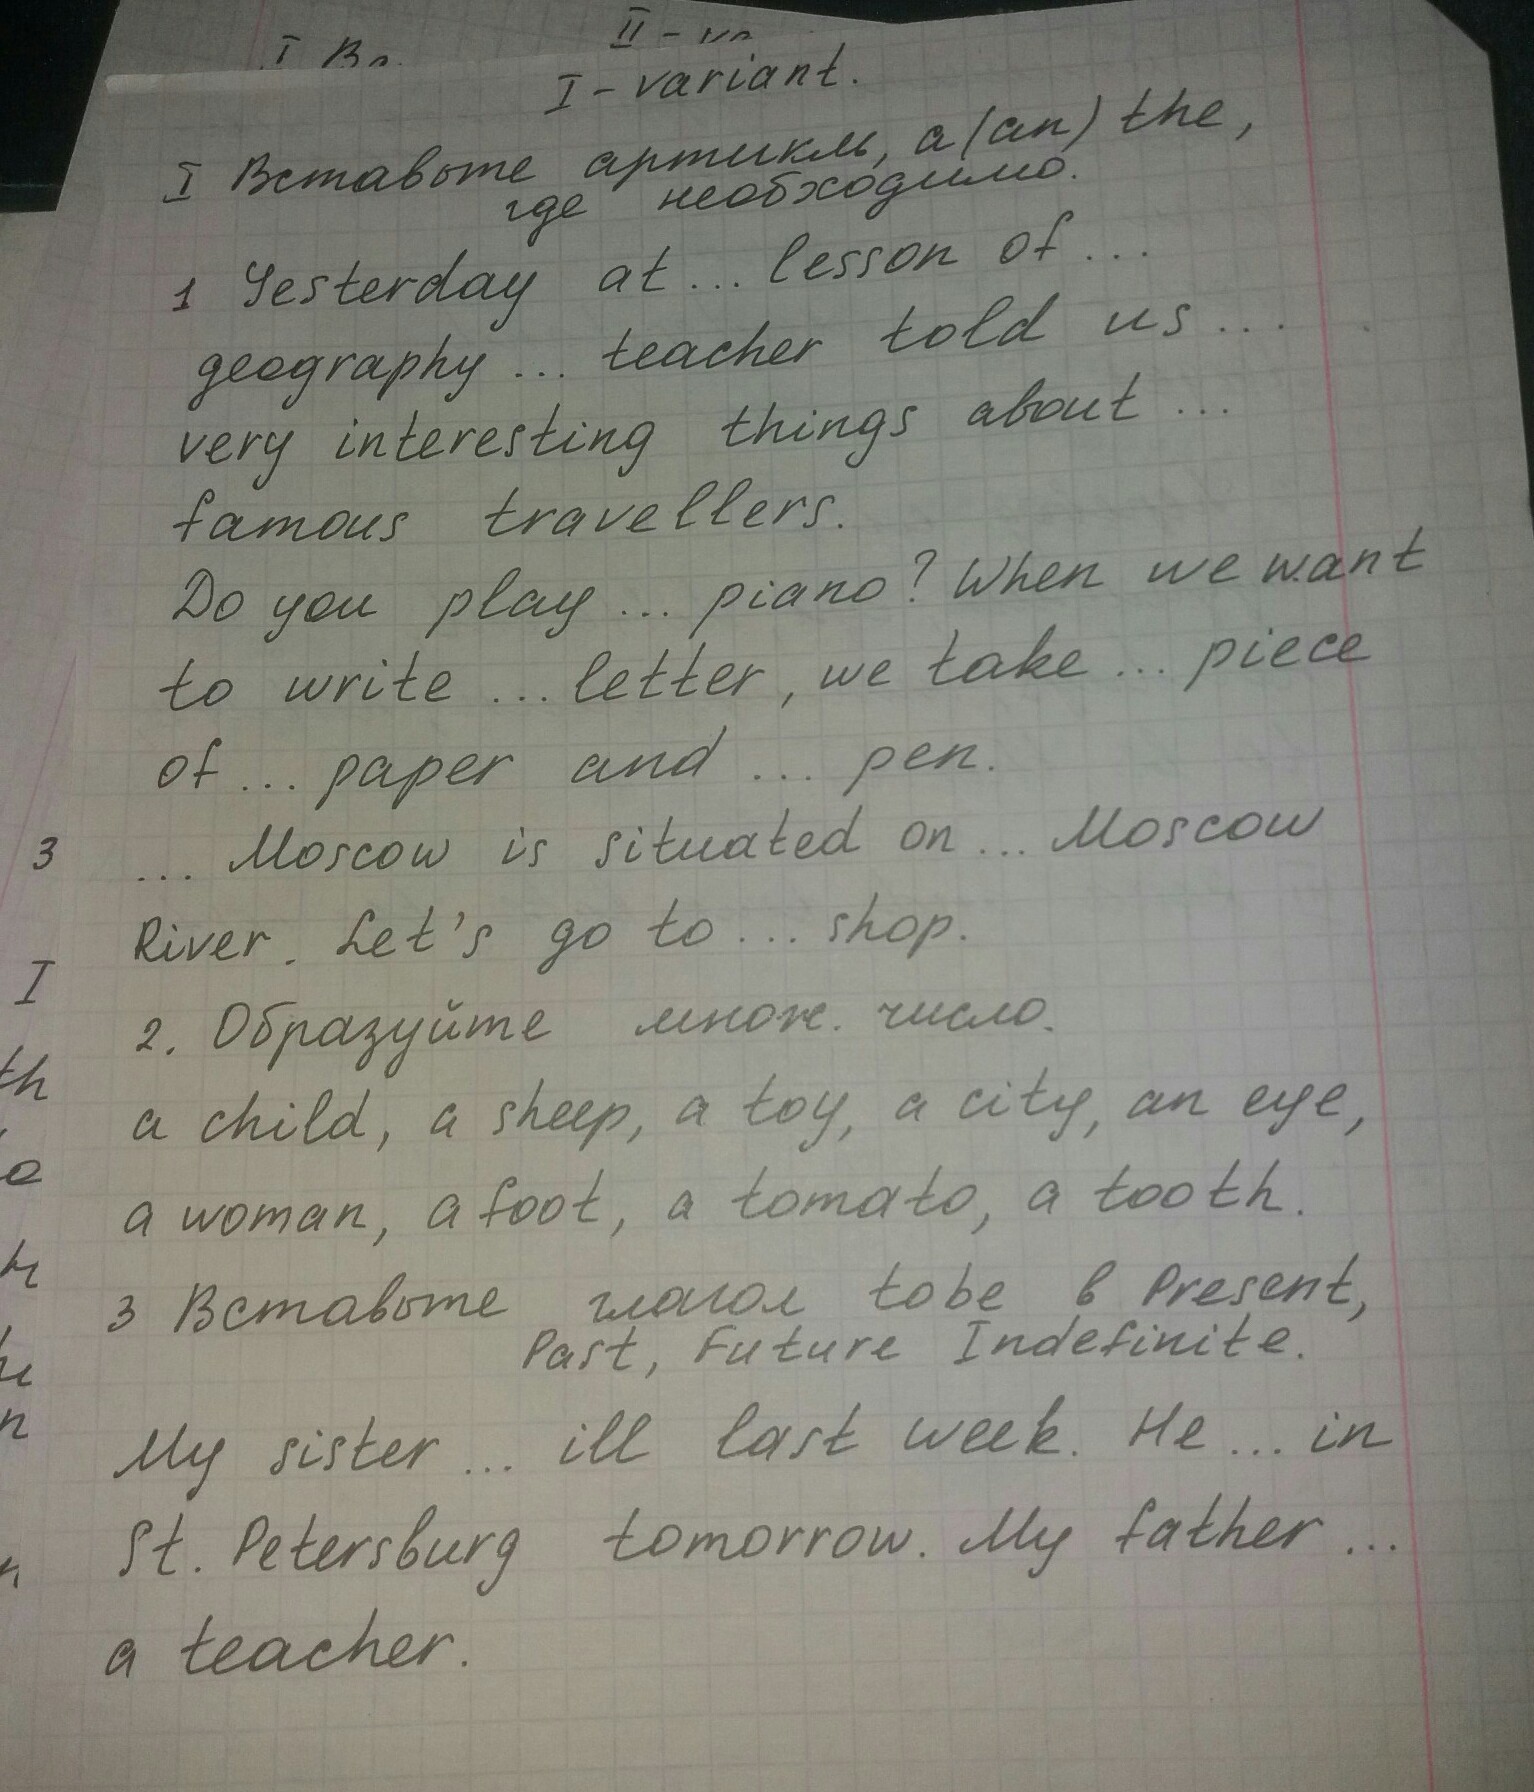 II - va
I Вс
I - variant.
I Вставьте артикль, a (an) the,
где необходимо.
1 Yesterday at ... lesson of ...
geography ... teacher told us ...
very interesting things about ...
famous travellers.
Do you play ... piano? When we want
to write ... letter, we take ... piece
of ... paper and ... pen.
3 ... Moscow is situated on ... Moscow
River. Let's go to ... shop.
I
2. Образуйте множ. число.
th
a child, a sheep, a toy, a city, an eye,
a woman, a foot, a tomato, a tooth.
3 Вставьте глагол tobe в Present,
Past, Future Indefinite.
My sister ... ill last week. He ... in
St. Petersburg tomorrow. My father ...
a teacher.